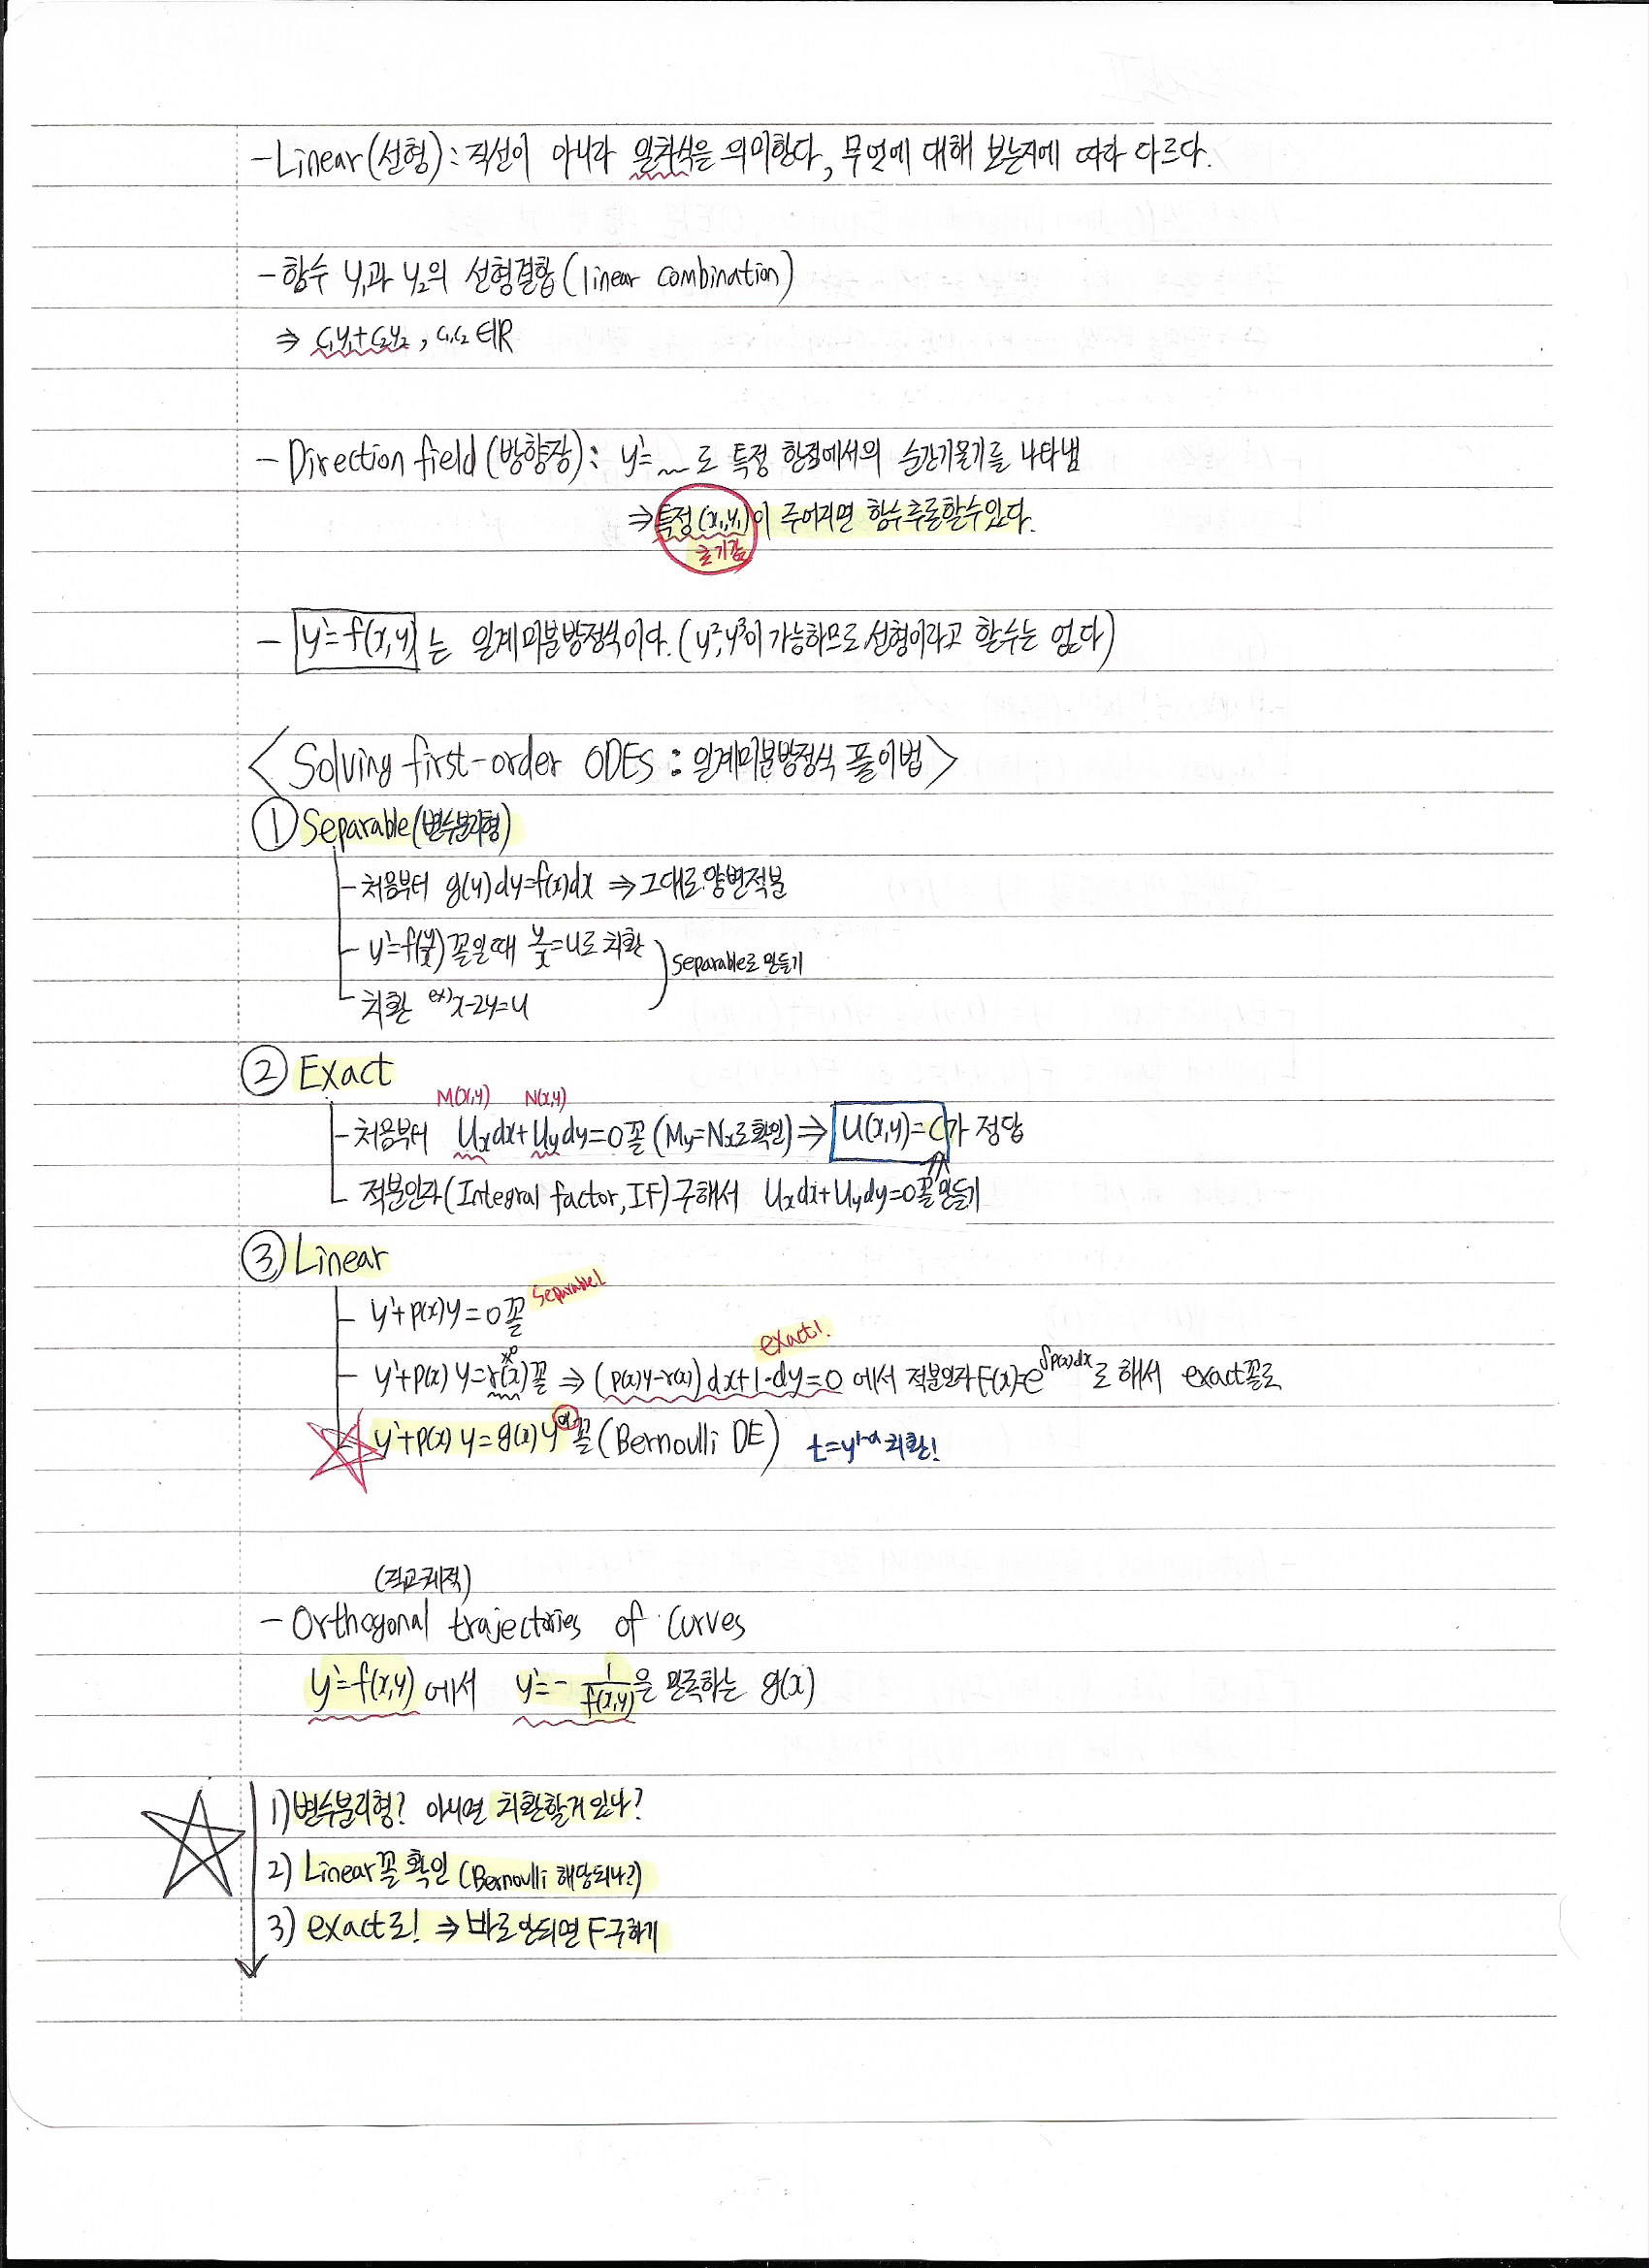 -Linear(선형): 직선이 아니라 일차식을 의미한다, 무엇에 대해 보는지에 따라 다르다.
- 함수 y₁과 y₂의 선형결합(linear combination)
⇒ c₁y₁+c₂y₂, c₁,c₂∈ℝ
- Direction field(방향장): y'=﹏로 특정 한점에서의 순간기울기를 나타냄
⇒특정(x₁,y₁)이 주어지면 함수추론할수있다.
초기값
- y'=f(x,y)는 일계미분방정식이다.(y²,y³이 가능하므로 선형이라고 할수는 없다)
<Solving first-order ODEs : 일계미분방정식 풀이법>
① Separable(변수분리형)
-처음부터 g(y)dy=f(x)dx ⇒그대로 양변적분
- y'=f(y/x)꼴일때 y/x=u로 치환
separable로 만들기
- 치환 ex) x-2y=u
② Exact
M(x,y) N(x,y)
-처음부터 Uₓdx+U_y dy=0꼴(My=Nx로확인)⇒ U(x,y)=C가 정답
- 적분인자(Integral factor,IF)구해서 Uₓdx+U_y dy=0꼴만들기
③ Linear
- y'+p(x)y=0꼴 separable!
exact!
- y'+p(x)y=r(x)꼴 ⇒ (p(x)y-r(x))dx+1·dy=0 에서 적분인자F(x)=e^∫p(x)dx로 해서 exact꼴로
- y'+p(x)y=g(x)y^a꼴(Bernoulli DE) t=y^1-a 치환!
(직교궤적)
- Orthogonal trajectories of curves
y'=f(x,y)에서 y'=- 1/f(x,y)을 만족하는 g(x)
1)변수분리형? 아니면 치환할거있나?
2) Linear꼴 확인 (Bernoulli 해당되나?)
3) exact로! ⇒바로안되면 F구하기